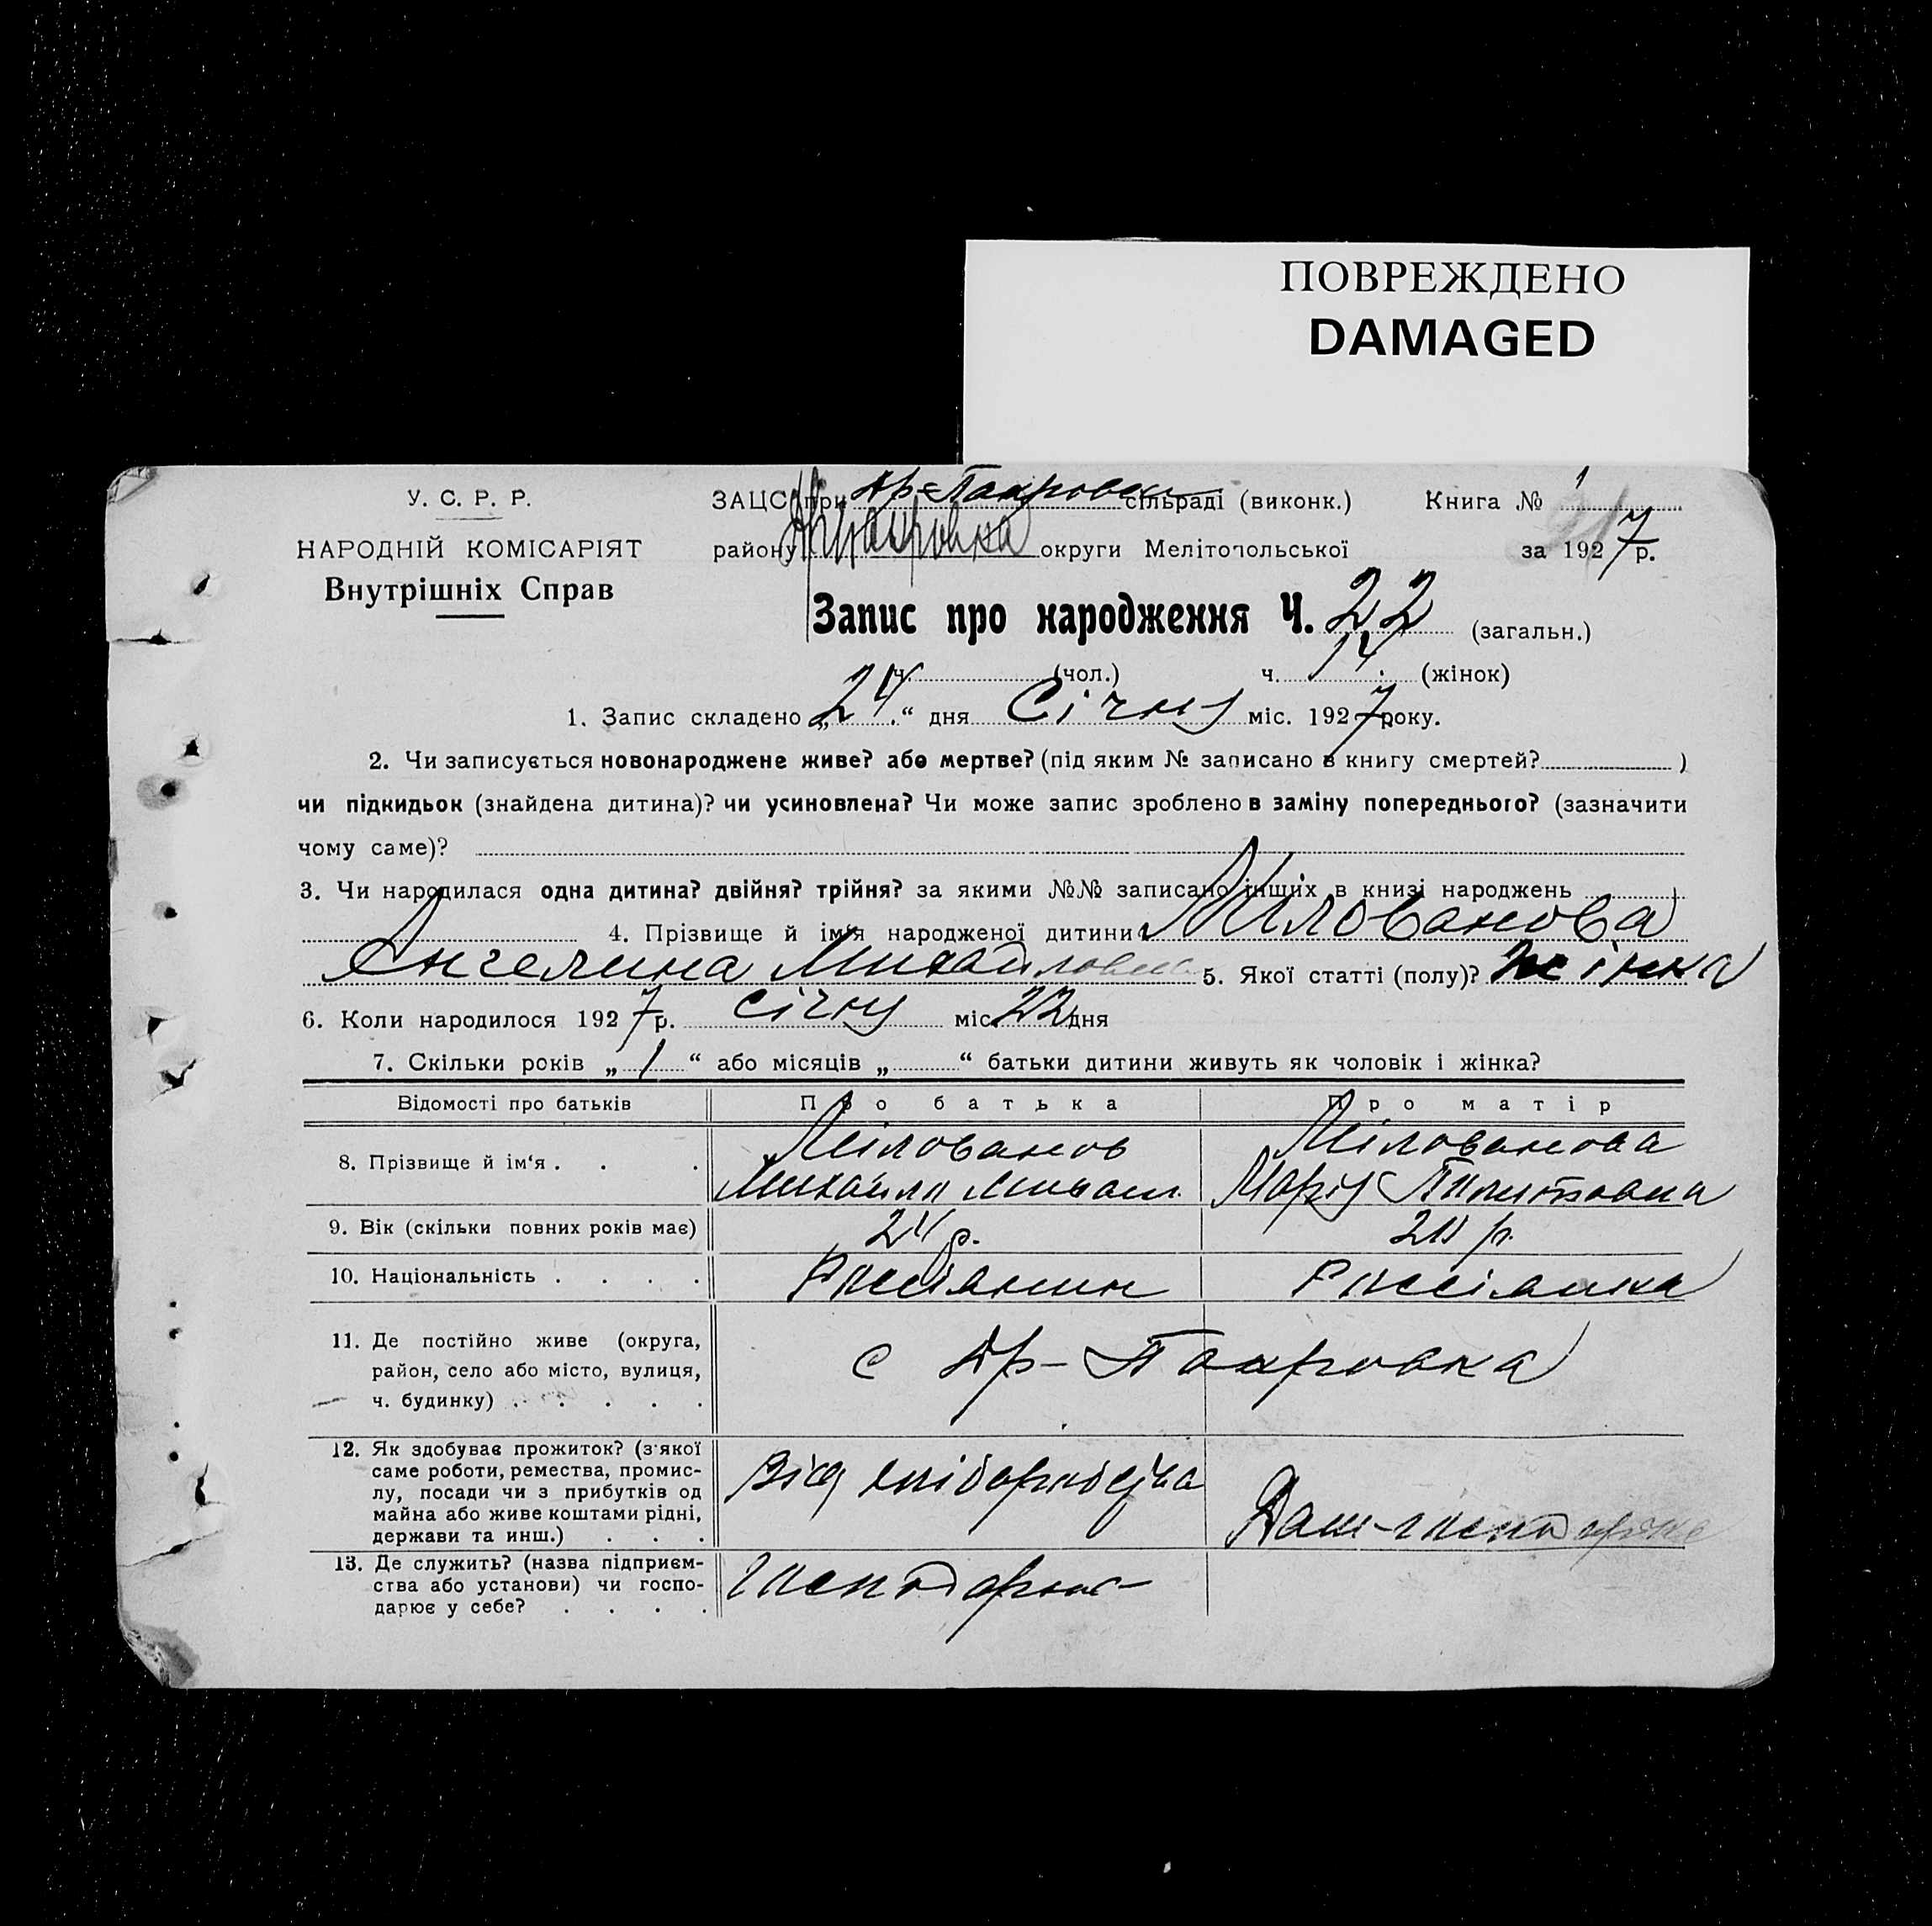 ПОВРЕЖДЕНО
DAMAGED
У. С. Р. Р.
НАРОДНІЙ КОМІСАРІЯТ
Внутрішніх Справ
ЗАЦС при Др-Пакровки сільраді (виконк.) Книга № 1
району округи Мелітопольської за 1927 р.
Запис про народження Ч. 22 (загальн.)
ч. (чол.) ч. 14 (жінок)
1. Запис складено „24“ дня Січня міс. 1927 року.
2. Чи записується новонароджене живе? або мертве? (під яким № записано в книгу смертей? )
чи підкидьок (знайдена дитина)? чи усиновлена? Чи може запис зроблено в заміну попереднього? (зазначити
чому саме)?
3. Чи народилася одна дитина? двійня? трійня? за якими №№ записано інших в книзі народжень
4. Прізвище й ім'я народженої дитини Мілованова
Ангелина Михайловна 5. Якої статті (полу)? жінка
6. Коли народилося 1927 р. січня міс. 22 дня
7. Скільки років „1“ або місяців „ “ батьки дитини живуть як чоловік і жінка?
Відомості про батьків Про батька Про матір
8. Прізвище й ім'я . . . Мілованов Мілованова
Михайло Марія
9. Вік (скільки повних років має) 24 р. 20 р.
10. Національність . . . . Россіянин Россіянка
11. Де постійно живе (округа,
район, село або місто, вулиця,
ч. будинку) . . . . . .
с Др-Пакровка
12. Як здобуває прожиток? (з'якої
саме роботи, ремества, промис-
лу, посади чи з прибутків од
майна або живе коштами рідні,
держави та инш.) . . .
Від хліборобства
Дом-господарка
13. Де служить? (назва підприєм-
ства або установи) чи госпо-
дарює у себе? . . . .
господарює